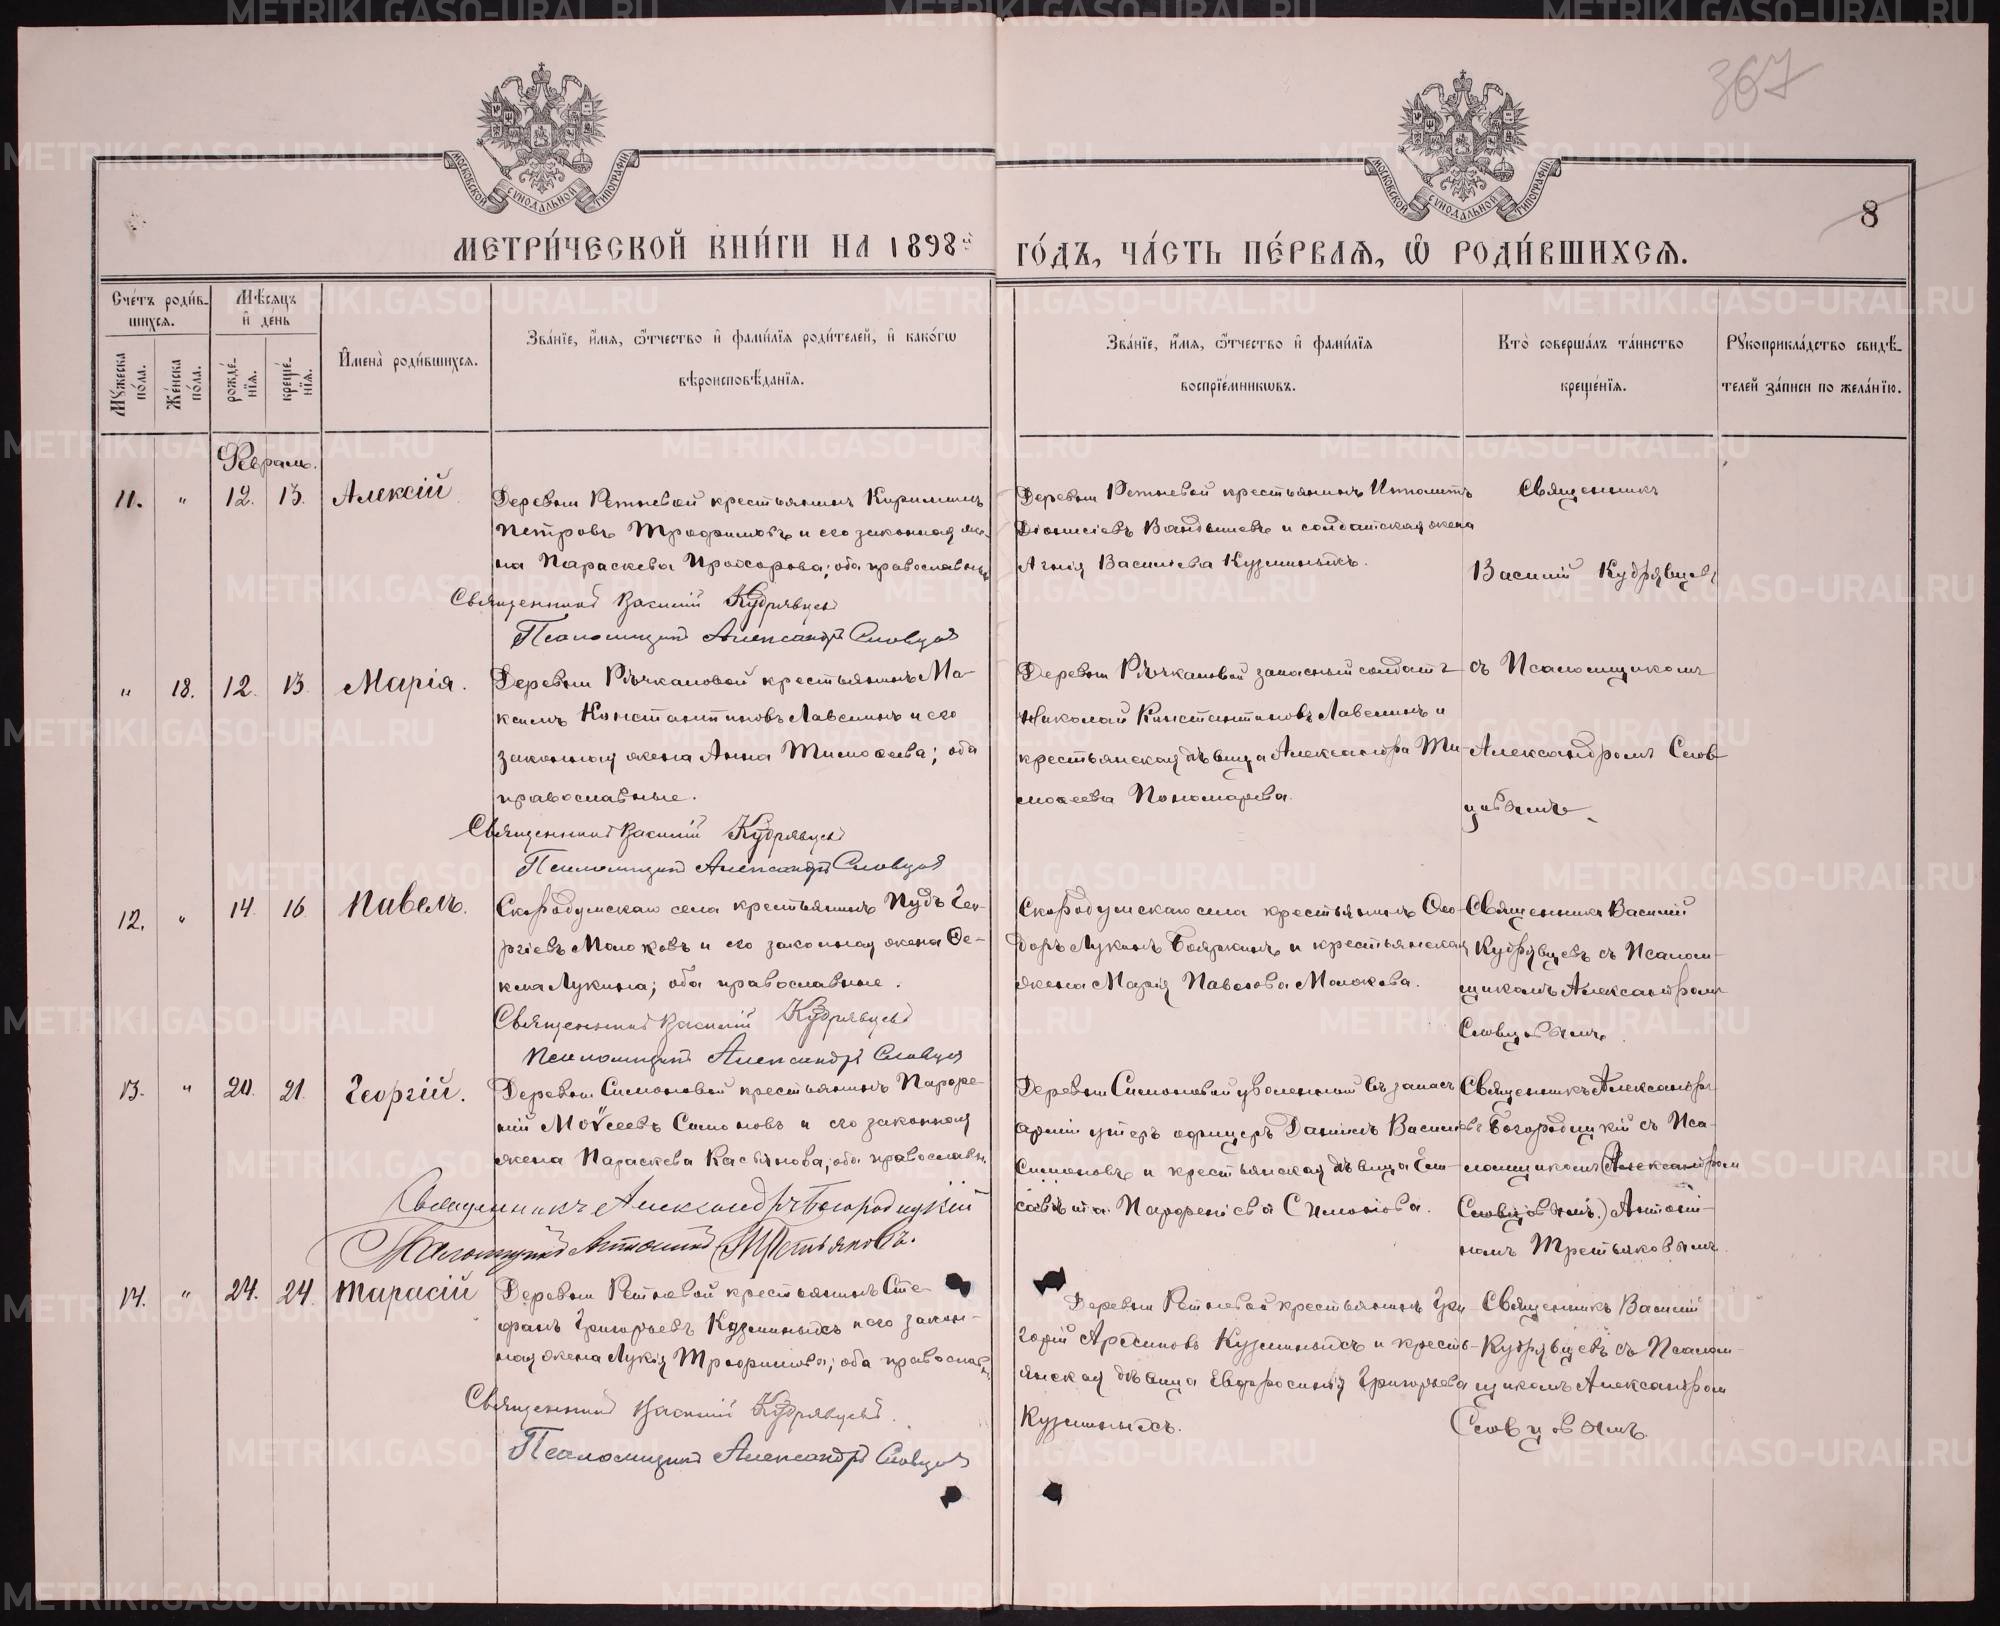 367
8
МОСКОВСКОЙ СѴНОДАЛЬНОЙ ТИПОГРАФІИ
МОСКОВСКОЙ СѴНОДАЛЬНОЙ ТИПОГРАФІИ
МЕТРИ́ЧЕСКОЙ КНИ́ГИ НА 1898й ГО́ДЪ, ЧА́СТЬ ПЕ́РВАѦ, Ѡ҆ РОДИ́ВШИХСѦ.
Сче́тъ роди́в-
шихсѧ.
Мѣ́сѧцъ
и҆ де́нь
Мꙋ́жеска
по́ла.
Же́нска
по́ла.
рожде́-
нїѧ.
креще́-
нїѧ.
И҆мена̀ роди́вшихсѧ.
Зва́нїе, и҆́мѧ, ѻ҆́тчество и҆ фами́лїѧ роди́телей, и҆ како́гѡ
вѣроисповѣ́данїѧ.
Зва́нїе, и҆́мѧ, ѻ҆́тчество и҆ фами́лїѧ
воспрїе́мникѡвъ.
Кто̀ соверша́лъ та́инство
креще́нїѧ.
Рꙋкоприкла́дство свидѣ́-
телей за́писи по жела́нїю.
Февраль.
11. " 12. 13. Алексій
Деревни Ретневой крестьянинъ Кириллъ
Петровъ Трофимовъ и его законная же-
на Параскева Прохорова; оба православные
Священникъ Василій Кудрявцевъ
Псаломщикъ Александръ Словцовъ
Деревни Ретневой крестьянинъ Ипполитъ
Діонисіевъ Вандышевъ и солдатская жена
Агнія Василіева Кузьминыхъ.
Священникъ
Василій Кудрявцевъ
" 18. 12. 13. Марія.
Деревни Рѣчкаловой крестьянинъ Ма-
ксимъ Константиновъ Лавелинъ и его
законная жена Анна Тимоѳеева; оба
православные.
Священникъ Василій Кудрявцевъ
Псаломщикъ Александръ Словцовъ
Деревни Рѣчкаловой запасный солдатъ
Николай Константиновъ Лавелинъ и
крестьянская дѣвица Александра Ти-
моѳеева Пономарева.
съ Псаломщикомъ
Александромъ Слов-
цовымъ.
12. " 14. 16. Павелъ.
Скородумскаго села крестьянинъ Пудъ Геор-
гіевъ Молоковъ и его законная жена Ѳе-
кла Лукина; оба православные.
Священникъ Василій Кудрявцевъ
Псаломщикъ Александръ Словцовъ
Скородумскаго села крестьянинъ Ѳео-
доръ Лукинъ Бояркинъ и крестьянская
жена Марія Павлова Молокова.
Священникъ Василій
Кудрявцевъ съ Псалом-
щикомъ Александромъ
Словцовымъ.
13. " 20. 21. Георгій.
Деревни Симоновой крестьянинъ Парфе-
ній Моѵсеевъ Симоновъ и его законная
жена Параскева Касьянова; оба православн.
Священникъ Александръ Богородицкій
Псаломщикъ Антонинъ Третьяковъ.
Деревни Симоновой уволенный въ запасъ
арміи унтеръ офицеръ Даніилъ Василіевъ
Симоновъ и крестьянская дѣвица Ели-
савета Парфеніева Симонова.
Священникъ Александръ
Богородицкій съ Пса-
ломщикомъ (Александром
Словцовымъ.) Антони-
номъ Третьяковымъ.
14. " 24. 24. Тарасій
Деревни Ретневой крестьянинъ Сте-
фанъ Григорьевъ Кузьминыхъ и его закон-
ная жена Лукія Трофимова; оба православн.
Священникъ Василій Кудрявцевъ.
Псаломщикъ Александръ Словцовъ
Деревни Ретневой крестьянинъ Гри-
горій Кузьминыхъ и кресть-
янская дѣвица Евфросинія Григорьева
Кузьминыхъ.
Священникъ Василій
Кудрявцевъ съ Псалом-
щикомъ Александром
Словцовымъ.
METRIKI.GASO-URAL.RU